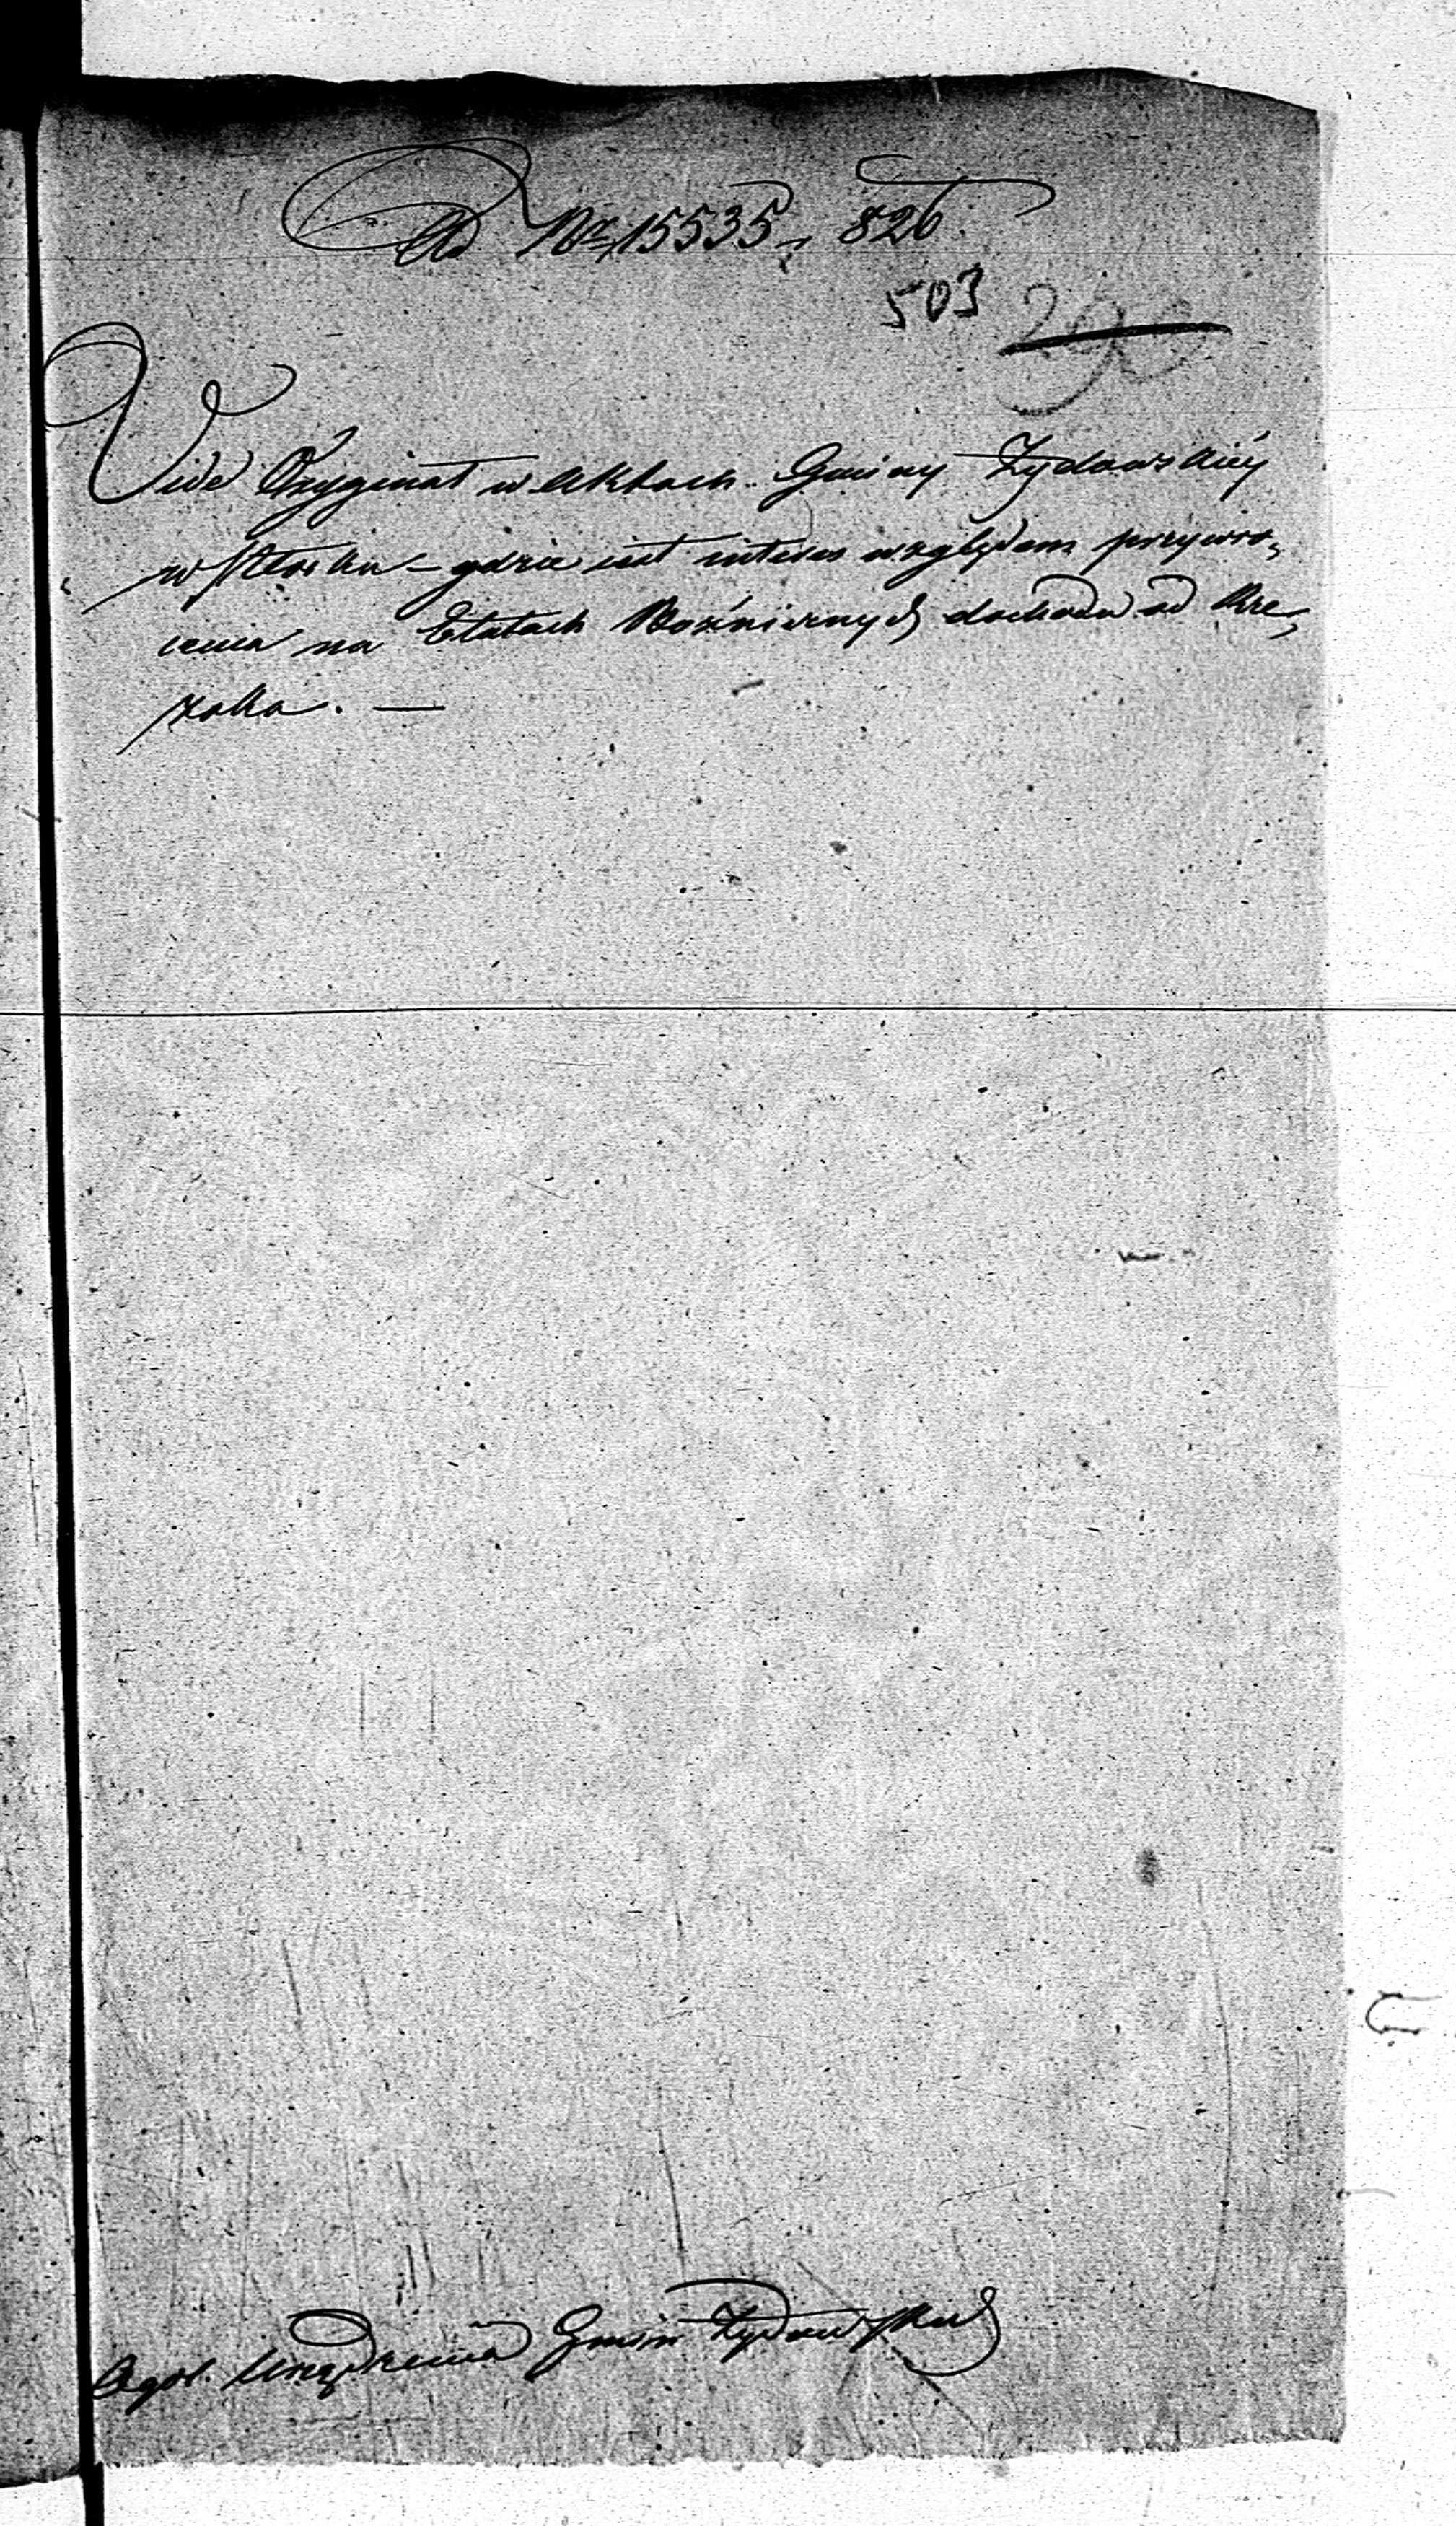 Ad Nr 15535 826.
503 290
Vide Oryginał w Aktach Gminy Żydowskiéy
w Płocku – gdzie iest interes względem przywró,
cenia na Etatach Bożnicznych dochodu od Krę,
żołka. —
Ogól. Urządzenia Gmin Żydowskich